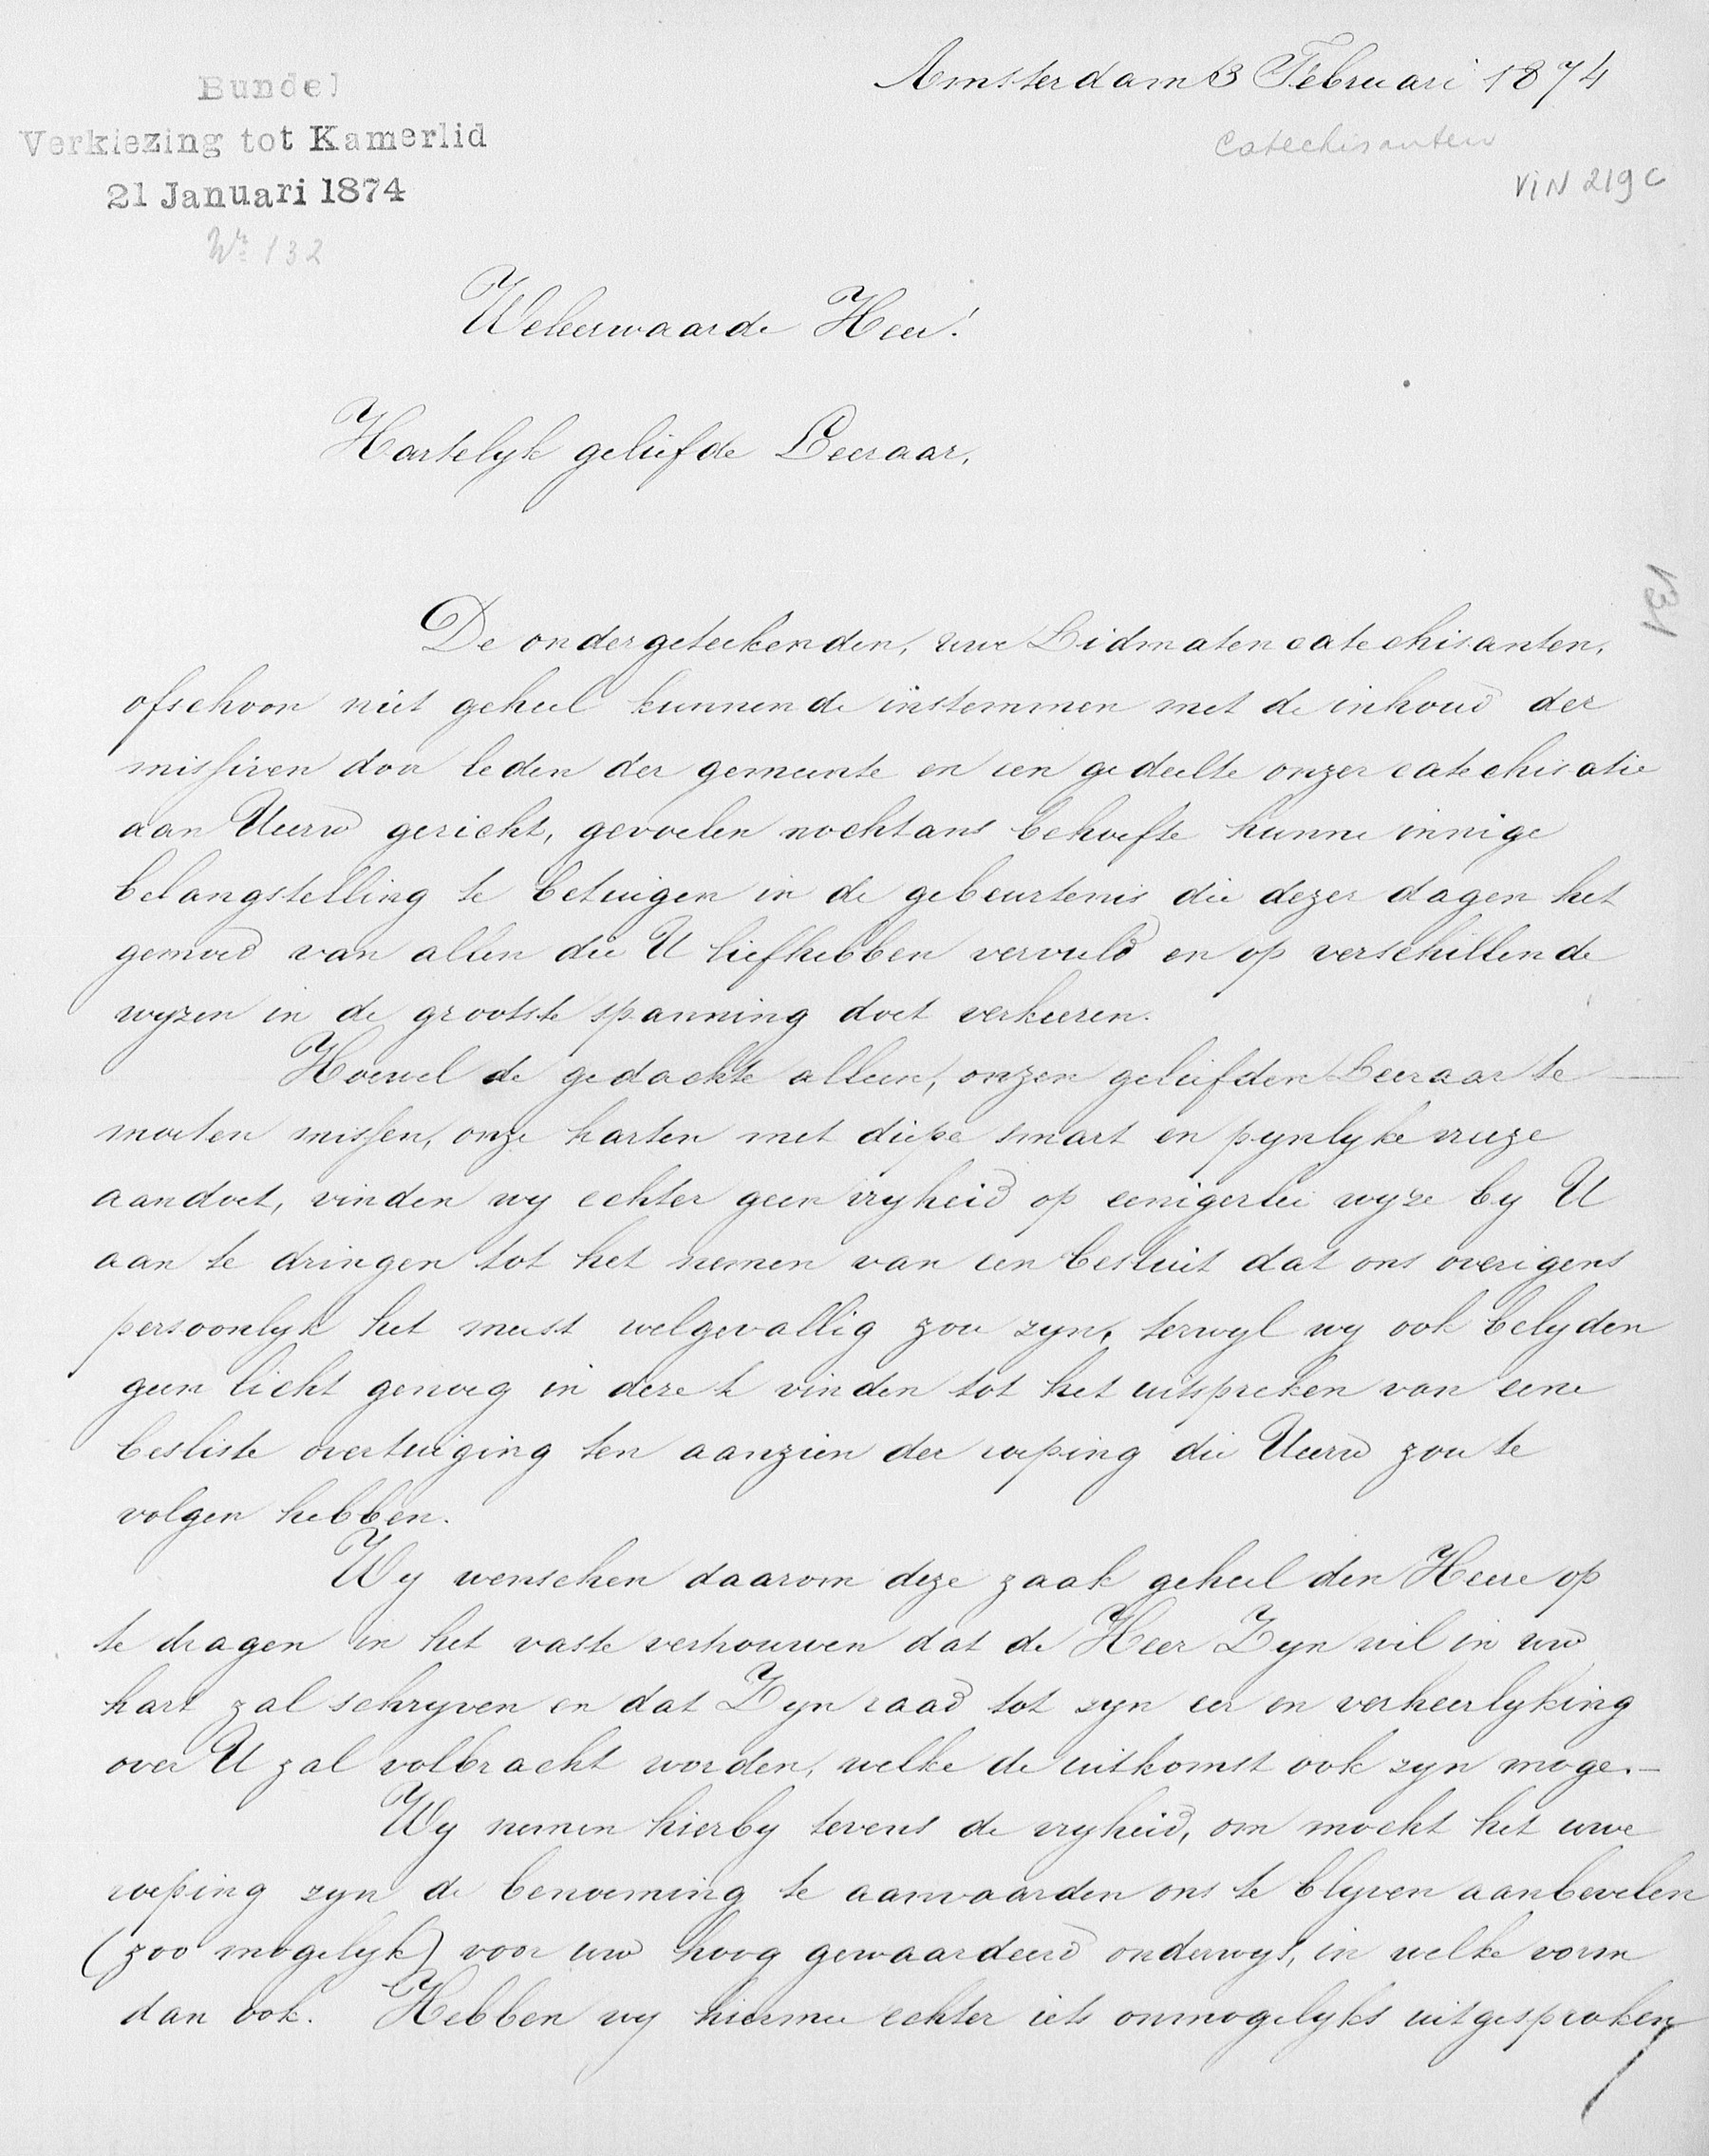 Amsterdam 3 Februari 1874
Bundel
Verkiezing tot Kamerlid
21 Januari 1874
Nr 132
Catechisanten
VIN 219 c
Weleerwaarde Heer!
Hartelyk geliefde Leeraar,
131
De ondergeteekenden, uwe Lidmaten catechisanten,
ofschoon niet geheel kunnende instemmen met de inhoud der
missiven door leden der gemeente en een gedeelte onzer catechisatie
aan Ueerw gericht, gevoelen nochtans behoefte hunne innige
belangstelling te betuigen in de gebeurtenis die dezer dagen het
gemoed van allen die U liefhebben vervuld en op verschillende
wyzen in de grootste spanning doet verkeeren.
Hoewel de gedachte alleen, onzen geliefden Leeraar te
moeten missen, onze harten met diepe smart en pynlyke vreeze
aandoet, vinden wy echter geen vryheid op eenigerlei wyze by U
aan te dringen tot het nemen van een besluit dat ons overigens
persoonlyk het meest welgevallig zou zyn, terwyl wy ook belyden
geen licht genoeg in deze te vinden tot het uitspreken van eene
besliste overtuiging ten aanzien der roeping die Ueerw zou te
volgen hebben.
Wy wenschen daarom deze zaak geheel den Heere op
te dragen in het vaste vertrouwen dat de Heer Zyn wil in uw
hart zal schryven en dat Zyn raad tot zyn eer en verheerlyking
over U zal volbracht worden, welke de uitkomst ook zyn moge.-
Wy nemen hierby tevens de vryheid, om mocht het uwe
roeping zyn de benoeming te aanvaarden ons te blyven aanbevelen
(zoo mogelyk) voor uw hoog gewaardeerd onderwys, in welke vorm
dan ook. Hebben wy hiermee echter iets onmogelyks uitgesproken